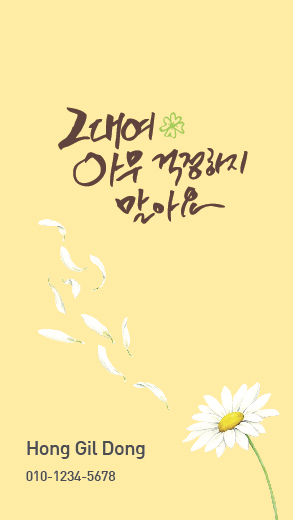 그대여
아무 걱정하지
말아요
Hong Gil Dong
010-1234-5678